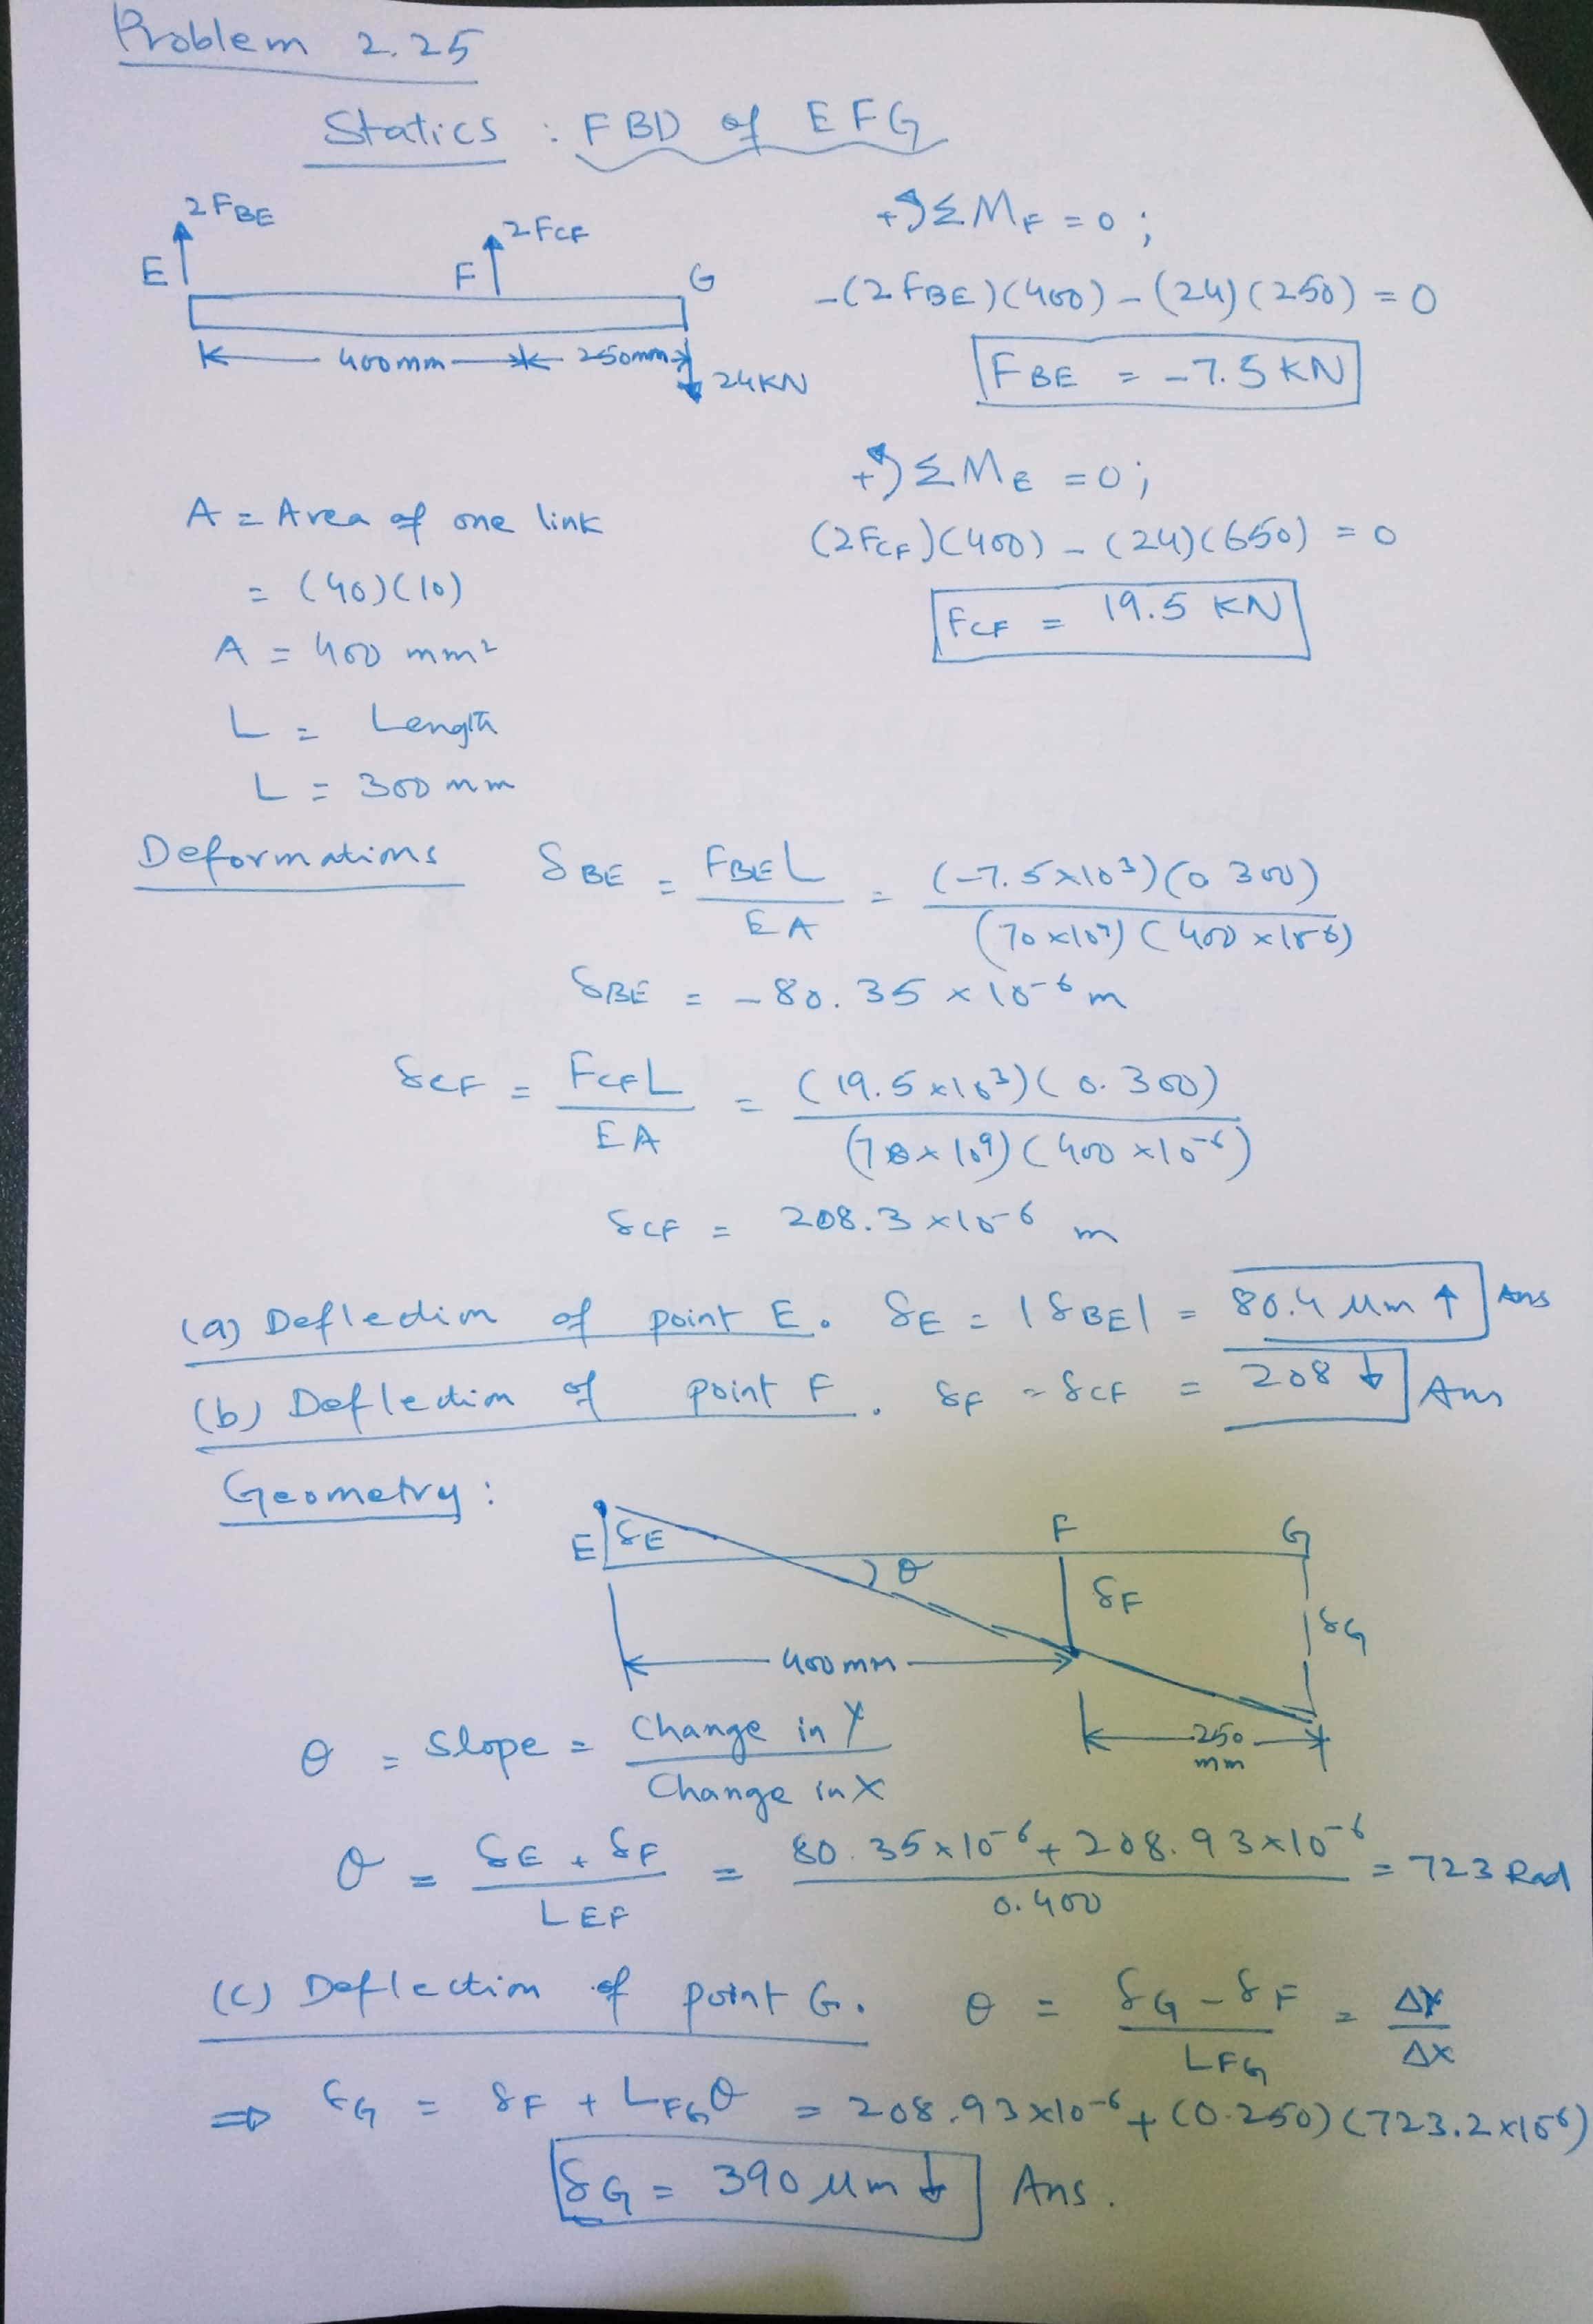 Problem 2.25
Statics : FBD of EFG
2FBE
2FCF
E
F
G
400mm
250mm
24KN
+ΣMF = 0;
-(2FBE)(400) - (24)(250) = 0
FBE = -7.5 KN
+ΣME = 0;
(2FCF)(400) - (24)(650) = 0
FCF = 19.5 KN
A = Area of one link
= (40)(10)
A = 400 mm²
L = Length
L = 300 mm
Deformations δBE = FBEL / EA = (-7.5x10³)(0 300) / (70x10⁹)(400x10⁻⁶)
δBE = -80.35 x 10⁻⁶ m
δCF = FCFL / EA = (19.5x10³)(0.300) / (70x10⁹)(400x10⁻⁶)
δCF = 208.3 x10⁻⁶ m
(a) Deflection of point E. δE = |δBE| = 80.4 μm ↑ Ans
(b) Deflection of point F. δF = δCF = 208 ↓ Ans
Geometry :
E
δE
θ
F
G
δF
δG
400mm
250
mm
θ = Slope = Change in Y / Change in X
θ = δE + δF / LEF = 80.35x10⁻⁶ + 208.93x10⁻⁶ / 0.400 = 723 Rad
(c) Deflection of point G. θ = δG - δF / LFG = ΔY / ΔX
⇒ δG = δF + LFGθ = 208.93x10⁻⁶ + (0.250)(723.2x10⁶)
δG = 390 μm ↓ Ans.